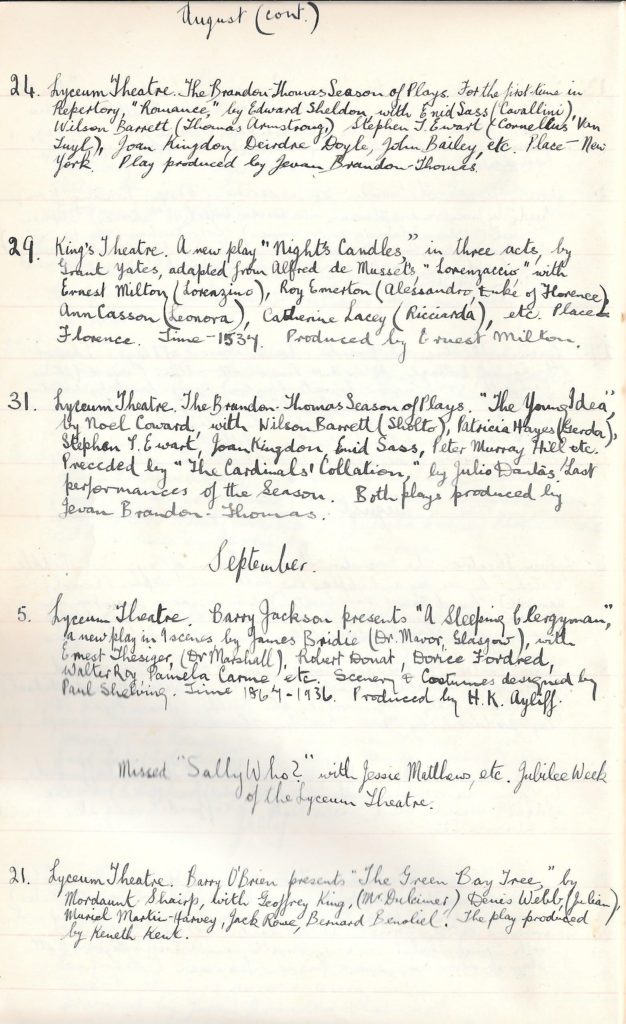 August (cont.)
24. Lyceum Theatre. The Brandon-Thomas Season of Plays. For the first-time in
Repertory, "Romance," by Edward Sheldon with Enid Sass (Cavallini),
Wilson Barrett (Thomas Armstrong), Stephen T. Ewart (Cornelius Van
Tuyl), Joan Kingdon Deirdre Doyle, John Bailey, etc. Place - New
York. Play produced by Jevan Brandon-Thomas.
29. King's Theatre. A new play "Night's Candles," in three acts, by
Grant Yates, adapted from Alfred de Musset's, "Lorenzaccio" with
Ernest Milton (Lorenzino), Roy Emerton (Alessandro, Duke of Florence),
Ann Casson (Leonora), Catherine Lacey (Ricciarda), etc. Place -
Florence. Time - 1537. Produced by Ernest Milton.
31. Lyceum Theatre. The Brandon-Thomas Season of Plays. "The Young Idea",
by Noel Coward, with Wilson Barrett (Sholto), Patricia Hayes (Gerda),
Stephen T. Ewart, Joan Kingdon, Enid Sass, Peter Murray Hill etc.
Preceded by "The Cardinals' Collation," by Julio Dantas. Last
performances of the Season. Both plays produced by
Jevan Brandon-Thomas.
September.
5. Lyceum Theatre. Barry Jackson presents "A Sleeping Clergyman",
a new play in 9 scenes by James Bridie (Dr. Mavor, Glasgow), with
Ernest Thesiger, (Dr Marshall), Robert Donat, Dorice Fordred,
Walter Roy, Pamela Carme etc. Scenery & Costumes designed by
Paul Shelving. Time 1867-1936. Produced by H.K. Ayliff.
Missed "Sally Who?" with Jessie Matthews, etc. Jubilee Week
of the Lyceum Theatre.
21. Lyceum Theatre. Barry O'Brien presents "The Green Bay Tree," by
Mordaunt Shairp, with Geoffrey King, (Mr. Dulcimer) Denis Webb, (Julian),
Muriel Martin-Harvey, Jack Rowe, Bernard Benoliel. The play produced
by Keneth Kent.